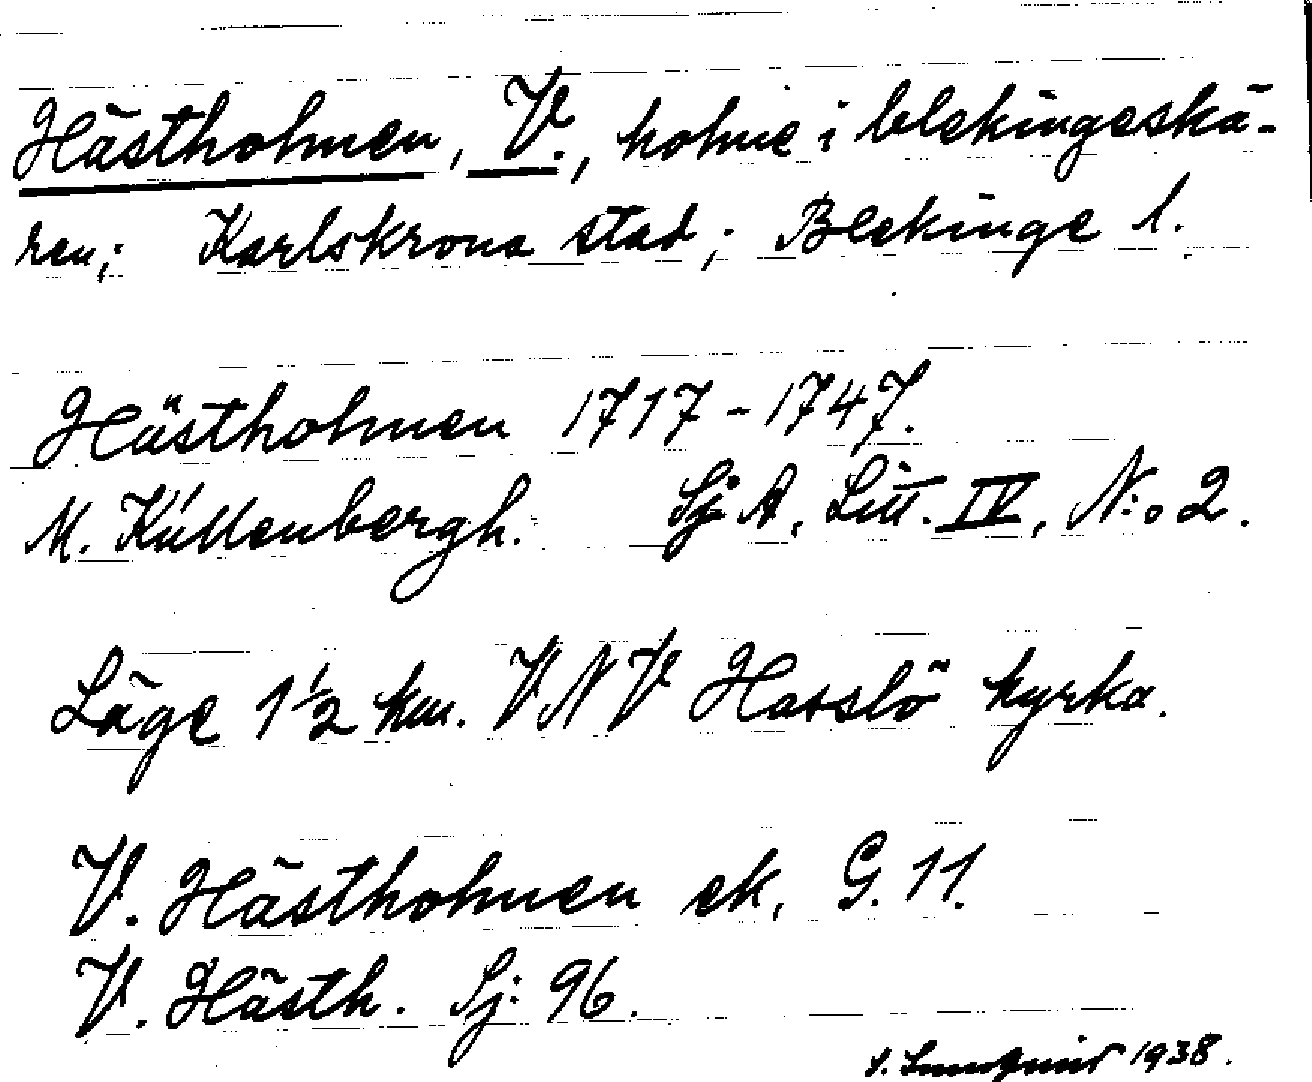 Hästholmen, V., holme i blekingeskä-
ren; Karlskrona stad; Blekinge l.
Hästholmen 1717-1747.
M. Kúllenbergh. Sj A, Litt. IV, N:o 2.
Läge 1 1/2 km. VNV Hasslö kyrka.
V. Hästholmen ek, G. 11.
V. Hästh. Sj: 96.
1938.